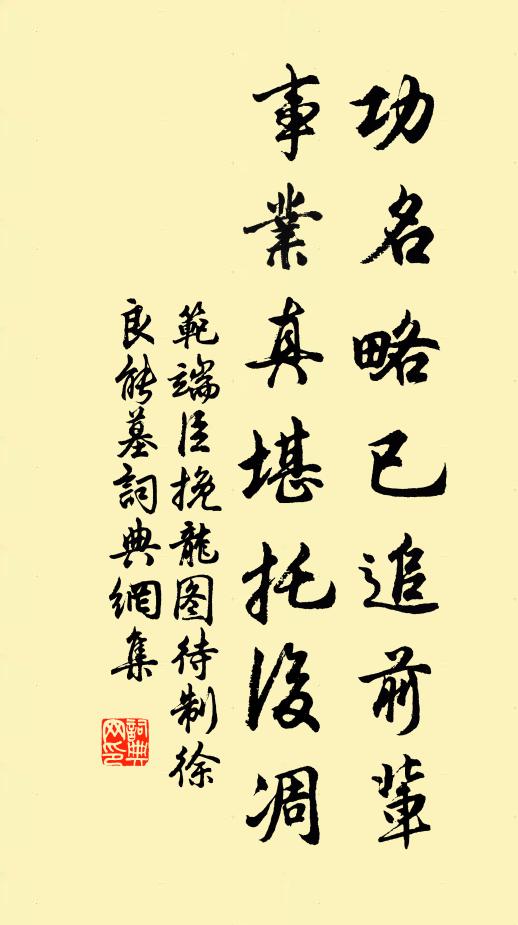 功名略已追前輩
事業真堪托後凋
範端臣挽龍图待制徐
良能墓詞典網集
詞典网印